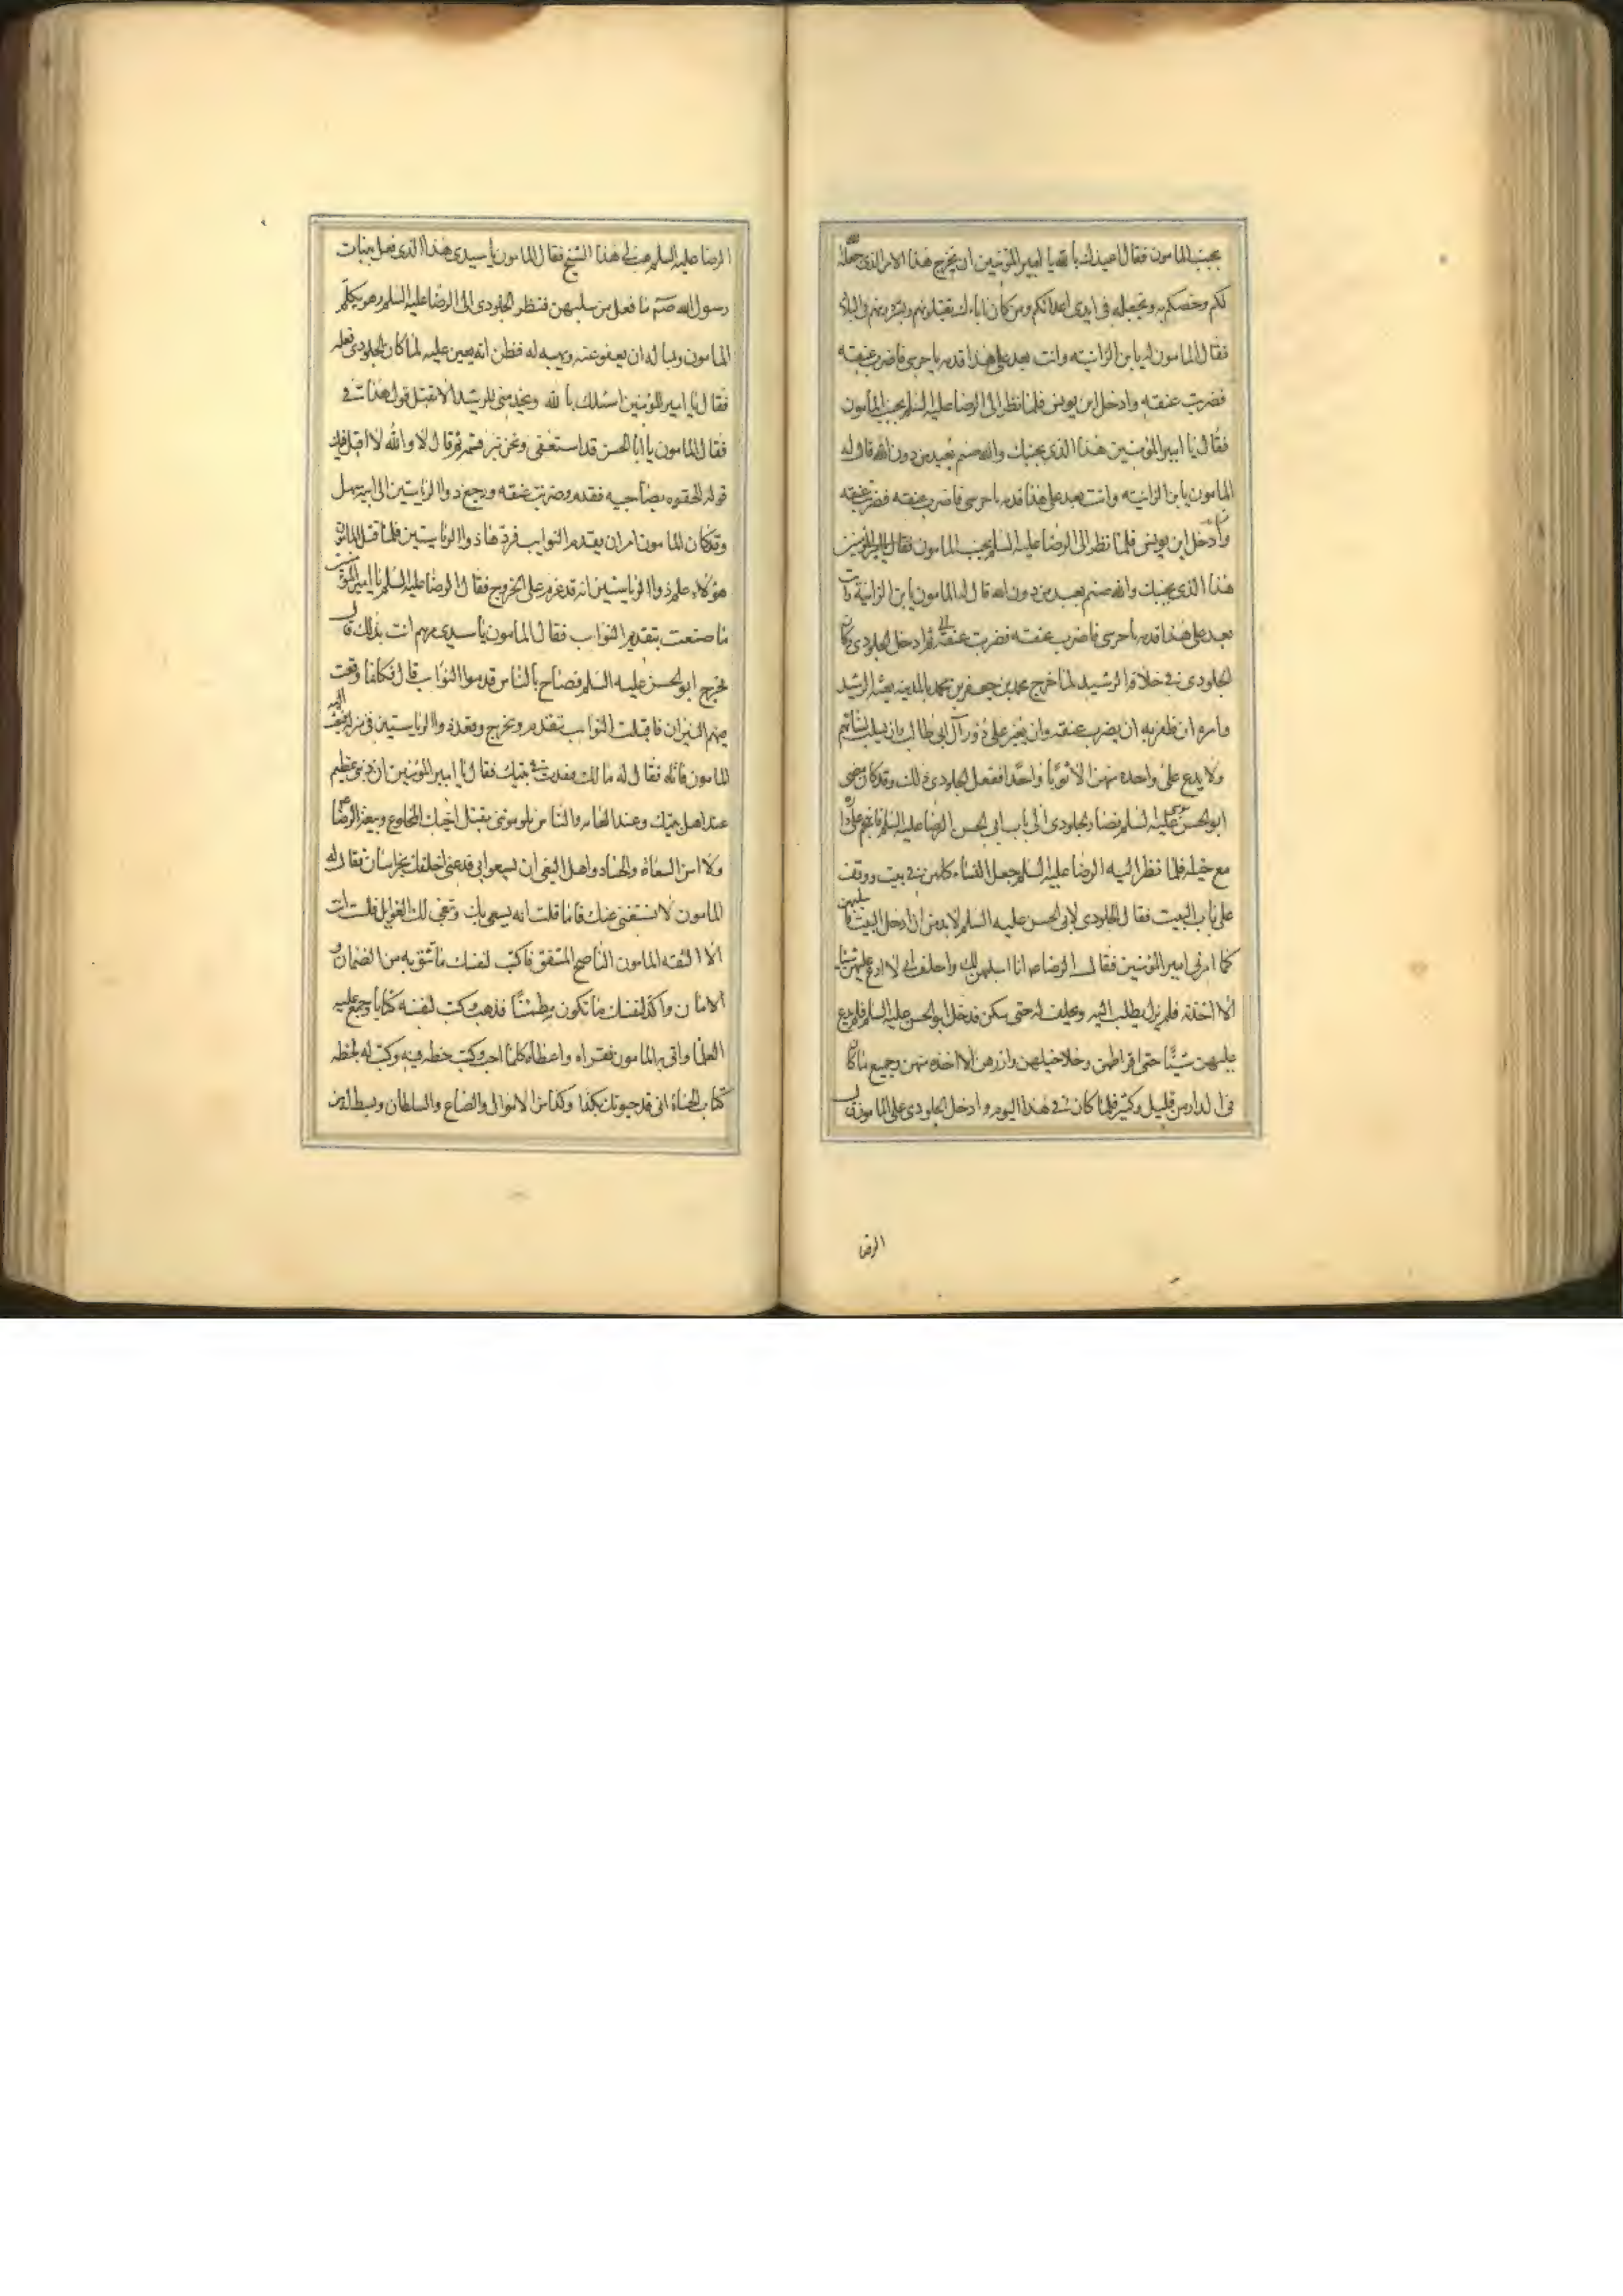 بجنب المامون فقال اعيذك بالله يا امير المؤمنين ان يخرج هذا الامر الذى جعله الله
لكم وخصكم به وتجعله فى ايدى اعدائكم ومن كان اباءك يقتلونهم ويشردونهم فى البلاد
فقال المامون له يا بن الزانيه وانت بعد على هذا قدمه يا حرسى فاضرب عنقه
فضربت عنقه وادخل ابن يونس فلما نظر الى الرضا عليه السلم بجنب المامون
فقال يا امير المؤمنين هذا الذى بجنبك والله صنم يعبد من دون الله قال له
المامون يا بن الزانيه وانت بعد على هذا قدمه يا حرسى فاضرب عنقه فضرب عنقه
وادخل ابن يونس فلما نظر الى الرضا عليه السلم بجنب المامون فقال يا امير المؤمنين
هذا الذى بجنبك والله صنم يعبد من دون الله قال له المامون يا بن الزانية وانت
بعد على هذا قدمه يا حرسى فاضرب عنقه فضربت عنقه ثم ادخل الجلودى وكان
الجلودى فى خلافة الرشيد لما خرج محمد بن جعفر بن محمد بالمدينه بعثه الرشيد
وامره ان ظفر به ان يضرب عنقه وان يغير على دور آل ابى طالب وان يسلب نسائهم
ولا يدع على واحده منهن الا ثوبا واحدا ففعل الجلودى ذلك وقد كان مضى
ابو الحسن موسى عليه السلم فصار الجلودى الى باب ابى الحسن الرضا عليه السلم فانهجم على داره
مع خيله فلما نظر اليه الرضا عليه السلم جعل النساء كلهن فى بيت ووقف
على باب البيت فقال الجلودى لابى الحسن عليه السلم لا بد من ان ادخل البيت فاسلبهن
كما امرنى امير المؤمنين فقال الرضا ص انا اسلبهن لك واحلف انى لا ادع عليهن شيئا
الا اخذته فلم يزل يطلب اليه ويحلف له حتى سكن فدخل ابو الحسن عليه السلم فلم يدع
عليهن شيئا حتى اقراطهن وخلاخيلهن وازرهن الا اخذه منهن وجميع ما كان
فى الدار من قليل وكثير فلما كان فى هذا اليوم وادخل الجلودى على المامون قال
الرضا
الرضا عليه السلم هب لى هذا الشيخ فقال المامون يا سيدى هذا الذى فعل ببنات
رسول الله ص ما فعل من سلبهن فنظر الجلودى الى الرضا عليه السلم وهو يكلم
المامون ويساله ان يعفو عنه ويهبه له فظن انه يعين عليه لما كان الجلودى فعله
فقال يا امير المؤمنين اسئلك بالله وبخدمتى للرشيد الا تقبل قول هذا فى
فقال المامون يا ابا الحسن قد استعفى ونحن نبر قسمه ثم قال لا والله لا اقبل فيك
قوله الحقوه بصاحبيه فقدم وضربت عنقه ورجع ذو الرياستين الى ابيه سهل
وقد كان المامون امر ان يقدم النوايب فردها ذو الرياستين فلما قتل المامون
هؤلاء علم ذو الرياستين انه قد عزم على الخروج فقال الرضا عليه السلم يا امير المؤمنين
ما صنعت بتقديم النوايب فقال المامون يا سيدى مرهم انت بذلك قال
فخرج ابو الحسن عليه السلم فصاح بالناس قدموا النوايب قال فكانما وقعت
فيهم النيران فاقبلت النوايب تتقدم وتخرج وقعد ذو الرياستين فى منزله فبعث اليه
المامون فاتاه فقال له ما لك قعدت فى بيتك فقال يا امير المؤمنين ان ذنبى عظيم
عند اهل بيتك وعند العامه والناس يلومونى بقتل اخيك المخلوع وبيعة الرضا
ولا امن السعاة والحساد واهل البغى ان يسعوا بى فدعنى اخلفك بخراسان فقال له
المامون لا نستغنى عنك فاما ما قلت انه يسعى بك وتبغى لك الغوايل فلست انت
الا الثقه المامون الناصح المشفق فاكتب لنفسك ما تثق به من الضمان و
الامان واكد لنفسك ما تكون مطمئنا فذهب وكتب لنفسه كتابا وجمع عليه
العلما واتى به المامون فقراه واعطاه كلما احب وكتب خطه فيه وكتب له بخطه
كتاب الحباة انى قد حبوتك بكذا وكذا من الاموال والضياع والسلطان وبسط له من